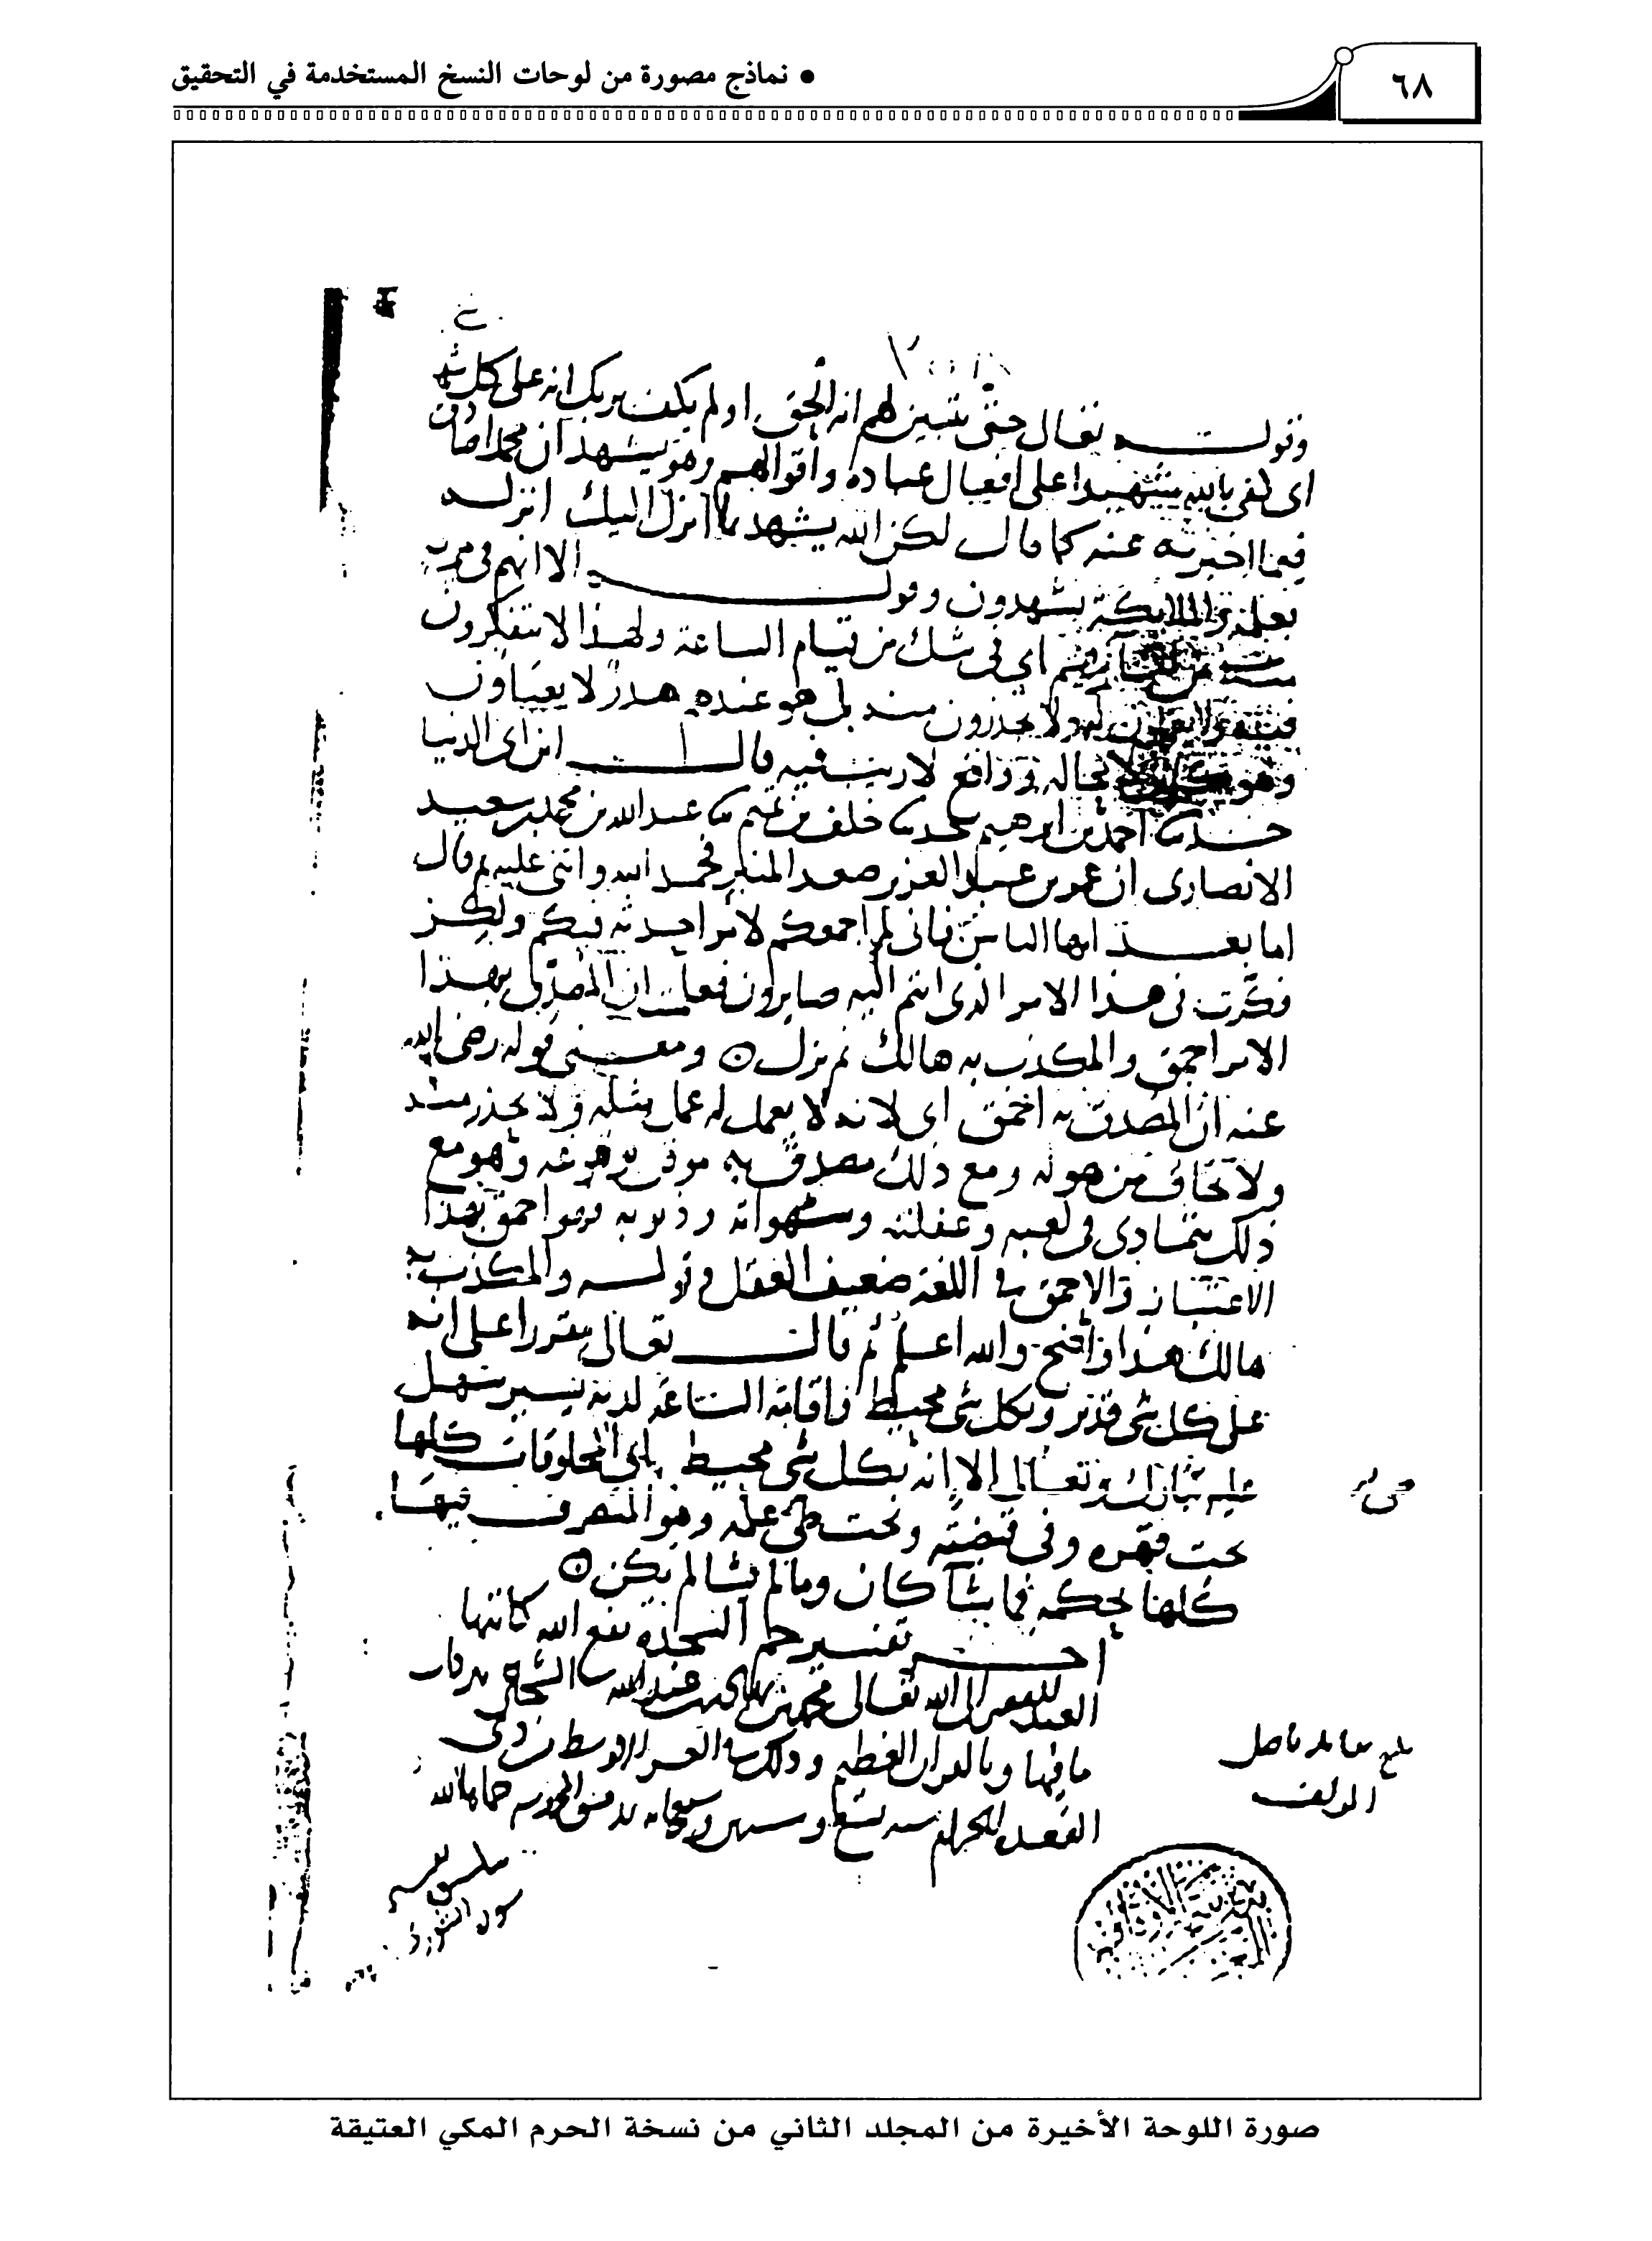 ٦٨
• نماذج مصورة من لوحات النسخ المستخدمة في التحقيق
وقوله تعالى حتى يتبين لهم انه الحق اولم يكف بربك انه على كل شي
اى كفى بالله شهيدا على افعال عباده واقوالهم وهو يشهد ان محمدا صادق
فيما اخبر به عنه كما قال لكن الله يشهد بما انزل اليك انزله
بعلمه والملايكة يشهدون وقوله الا انهم فى مرية
من لقا ربهم اى فى شك من قيام الساعة ولهذا لا يتفكرون
فيه ولا يعملون له ولا يحذرون منه بل هو عنده هدر لا يعباون
وهو لا محالة وواقع لا ريب فيه قال ابن ابى الدنيا
حدثنا احمد بن ابرهيم خلف بن تميم عبد الله بن محمد بن سعيد
الانصارى ان عمر بن عبد العزيز صعد المنبر فحمد الله واثنى عليه ثم قال
اما بعد ايها الناس فانى لم اجمعكم لامر احدثه فيكم ولكن
فكرت فى هذا الامر الذى انتم اليه صايرون فعلمت ان المصدق بهذا
الامر احمق والمكذب به هالك ثم نزل ومعنى قوله رضى الله
عنه ان المصدق به احمق اى لانه لا يعمل له عمل مثله ولا يحذر منه
ولا يخاف من هوله ومع ذلك مصدق به موقن بوقوعه وهو مع
ذلك يتمادى فى لعبه وغفلته وشهواته وذنوبه فهو احمق بهذا
الاعتبار والاحمق فى اللغة ضعيف العقل وقوله والمكذب به
هالك هذا واضح والله اعلم ثم قال تعالى مقررا على انه
على كل شى قدير وبكل شى محيط واقامة الساعة لديه يسير سهل
عليه تبارك وتعالى الا انه بكل شى محيط اى المخلوقات كلها
تحت قهره وفى قبضته وتحت طى علمه وهو المتصرف فيها
كلها بحكمه فما يشا كان وما لم يشا لم يكن
اخر تفسير حم السجدة نفع الله كاتبها
العبد الفقير الى الله تعالى محمد بن
ما فيها وبالقران العظيم وذلك العشر الاوسط من ذى
القعدة الحرام سنة تسع وسبعمايه بدمشق المحروسه حماها الله
بلغ مقابلة باصل
المولف
سورة الشورى
صورة اللوحة الأخيرة من المجلد الثاني من نسخة الحرم المكي العتيقة